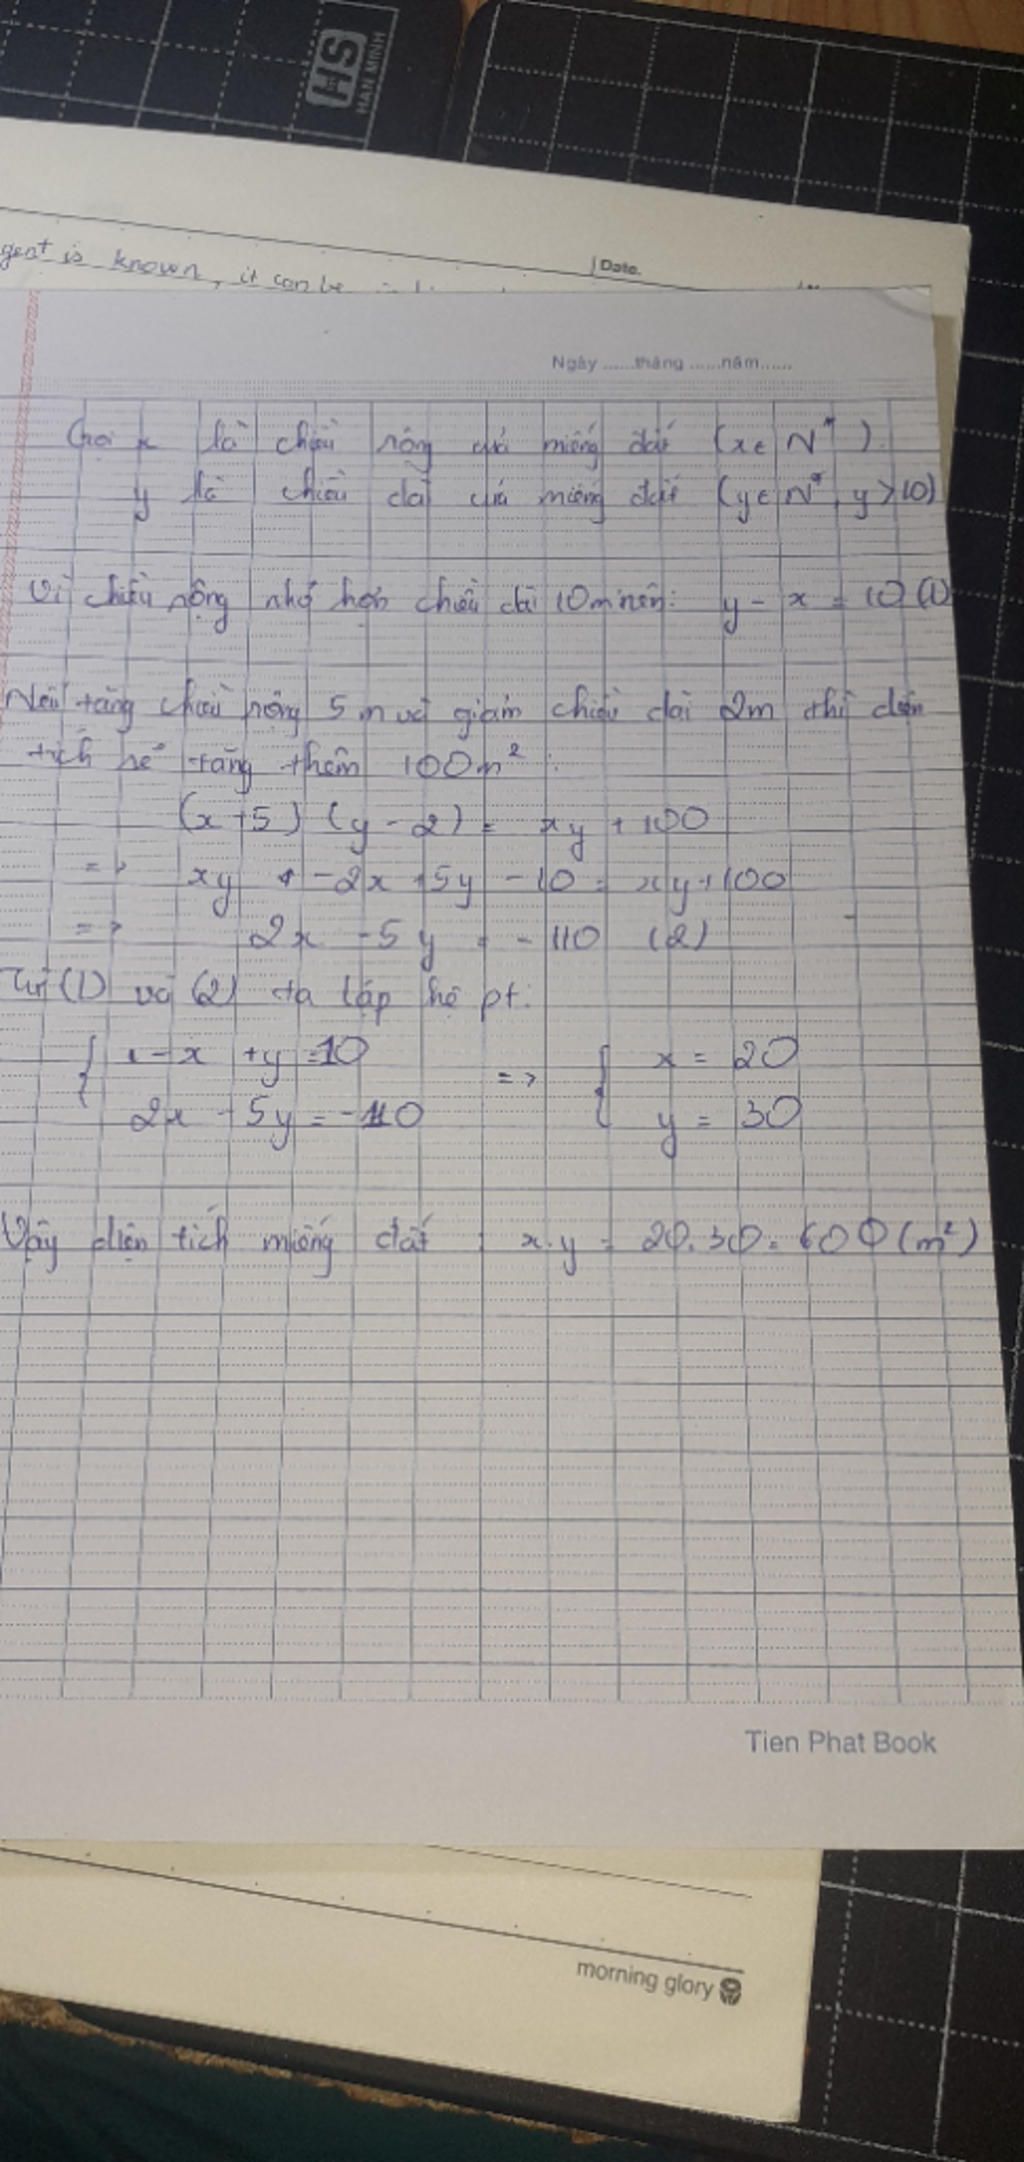 HS
HAN MINH
gent is known, it can be
Date.
Ngày ......tháng ......năm......
Gọi x là chiều rộng của miếng đất (x∈ N* ).
y là chiều dài của miếng đất (y∈ N*, y>10)
Vì chiều rộng nhỏ hơn chiều dài 10m nên: y - x = 10 (1)
Nếu tăng chiều rộng 5m và giảm chiều dài 2m thì diện
tích sẽ tăng thêm 100m² :
(x+5) (y-2) = xy + 100
=> xy + -2x +5y -10 = xy+100
=> 2x -5y = -110 (2)
Từ (1) và (2) ta lập hệ pt:
{ -x +y =10 => { x = 20
2x -5y = -110 y = 30
Vậy diện tích miếng đất : x.y = 20.30= 600 (m²)
Tien Phat Book
morning glory